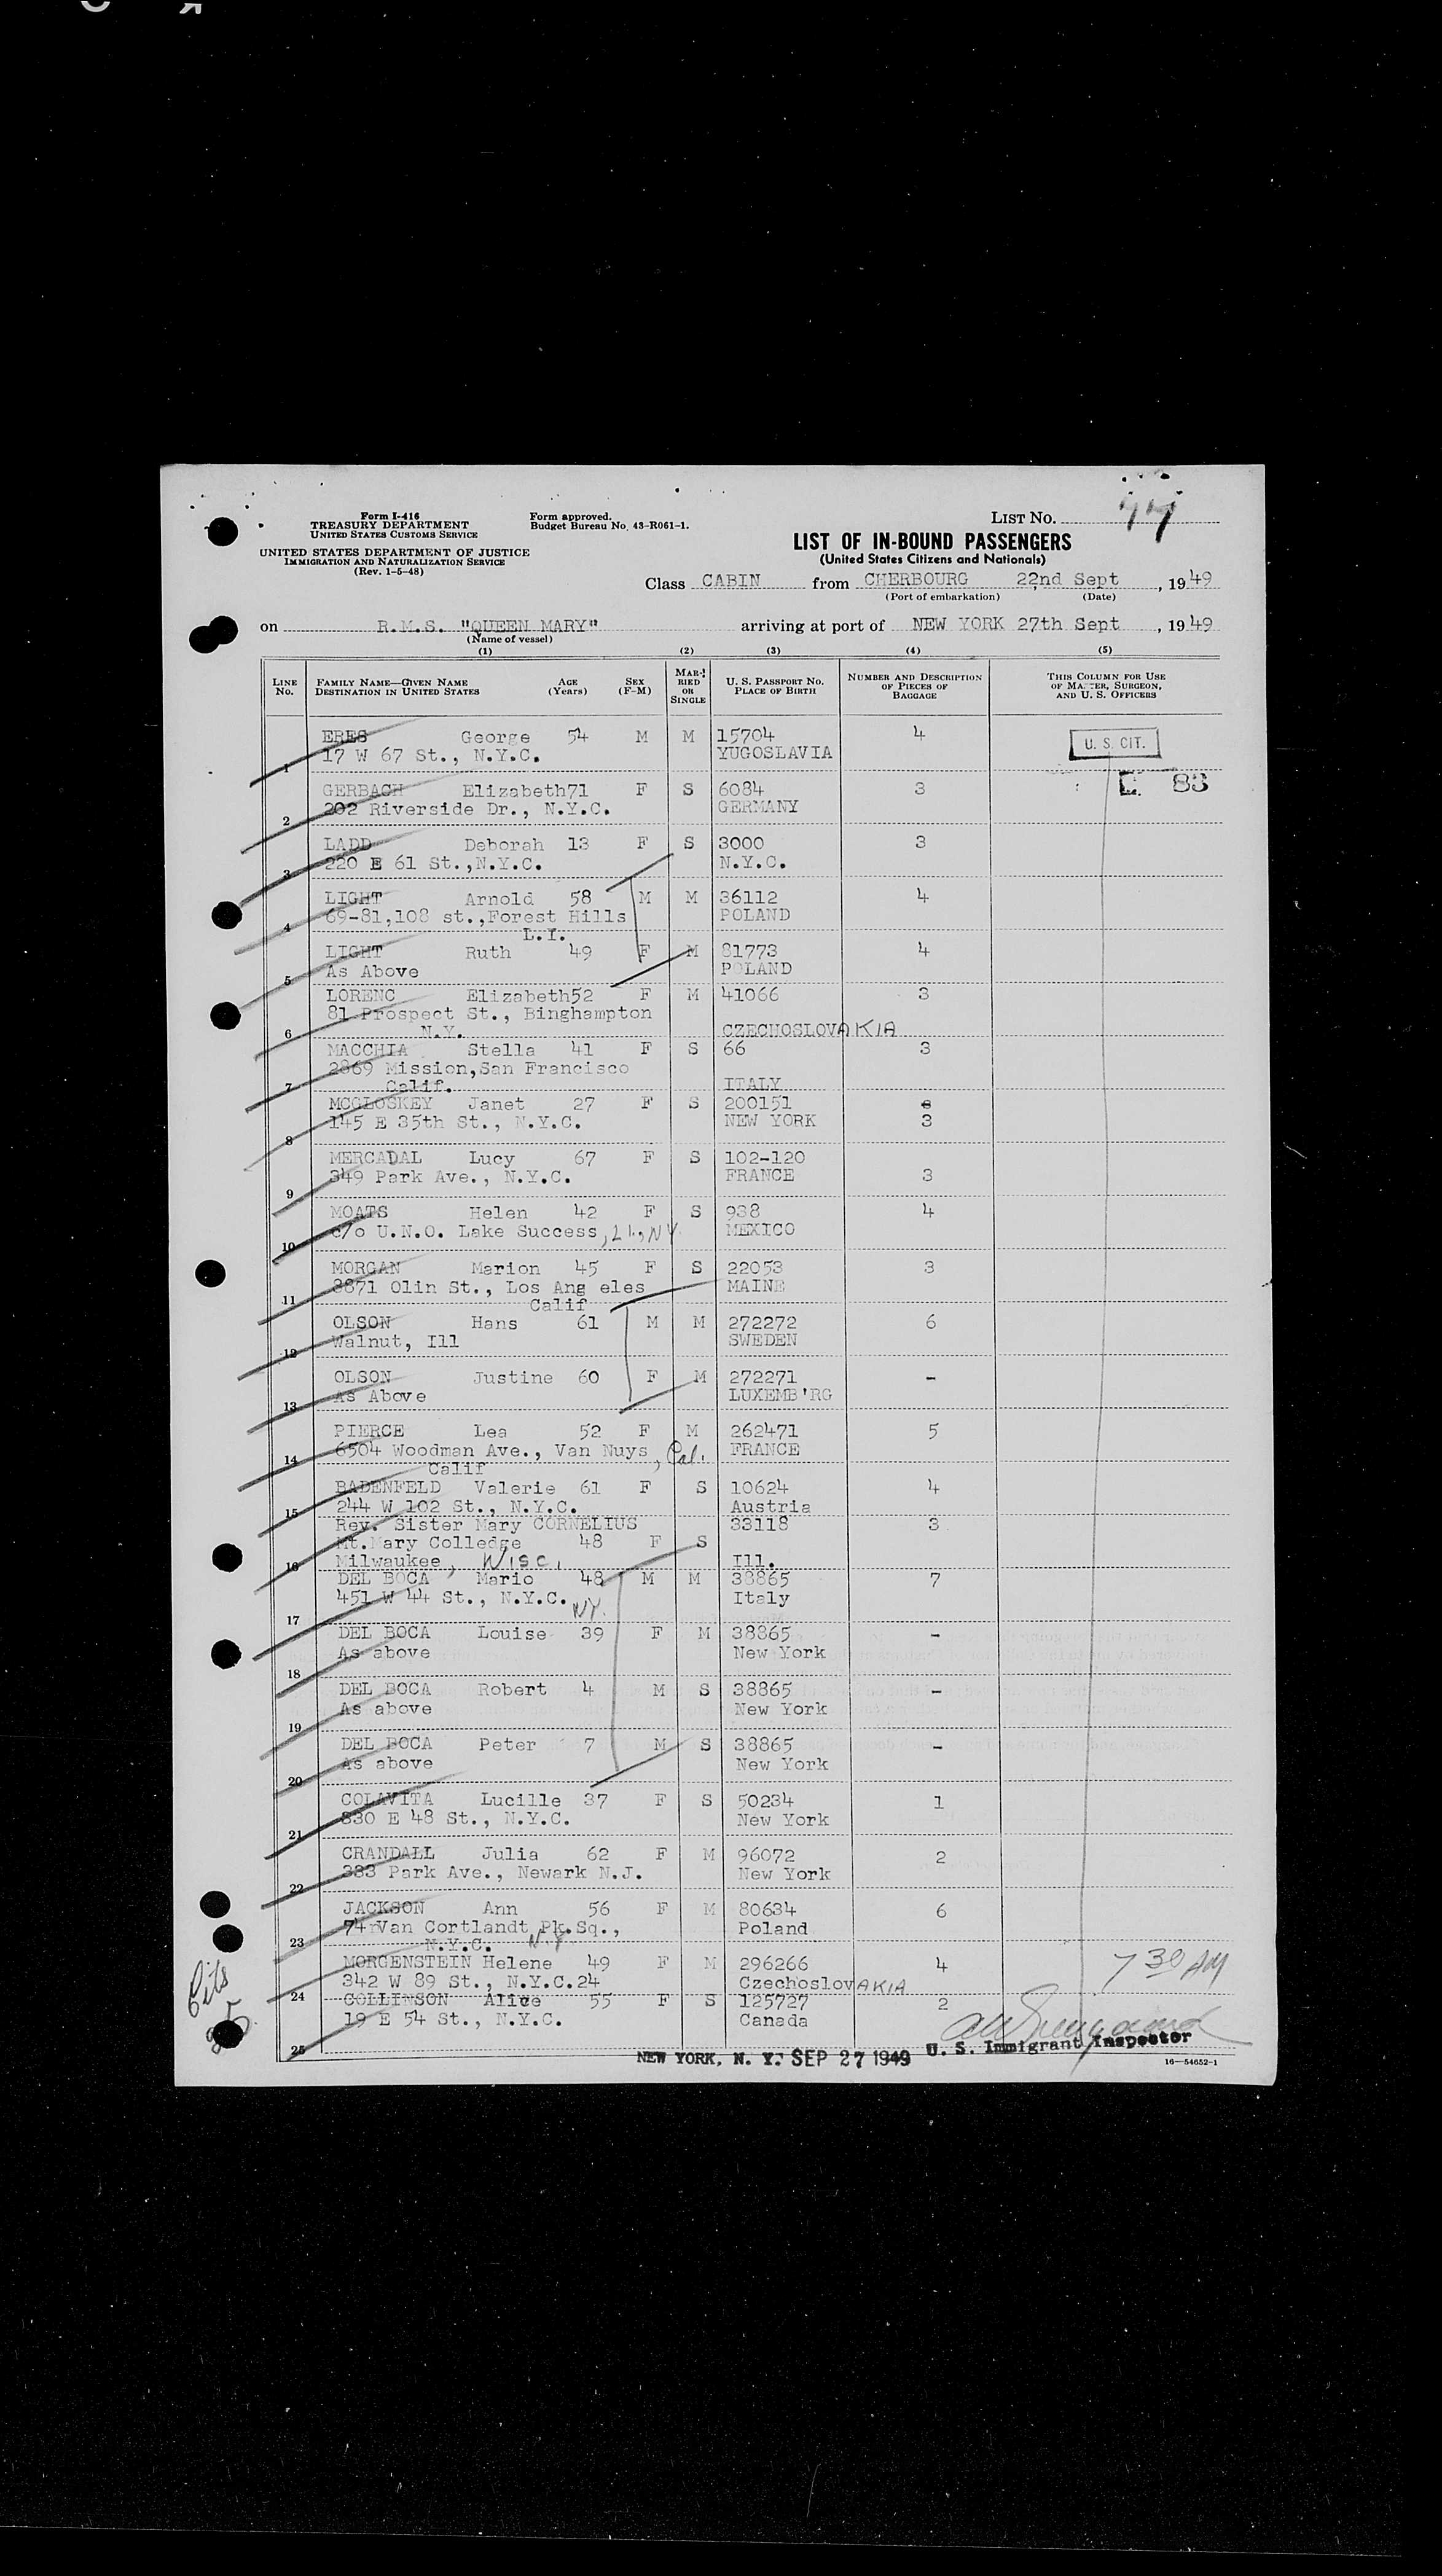 Form I-416
TREASURY DEPARTMENT
UNITED STATES CUSTOMS SERVICE
UNITED STATES DEPARTMENT OF JUSTICE
IMMIGRATION AND NATURALIZATION SERVICE
(Rev. 1-5-48)
Form approved.
Budget Bureau No. 43-R061-1.
LIST NO.
LIST OF IN-BOUND PASSENGERS
(United States Citizens and Nationals)
Class CABIN from CHERBOURG 22nd Sept, 1949
(Port of embarkation) (Date)
on R.M.S. "QUEEN MARY" arriving at port of NEW YORK 27th Sept, 1949
(Name of vessel)
(1) (2) (3) (4) (5)
LINE NO. FAMILY NAME—GIVEN NAME DESTINATION IN UNITED STATES AGE (Years) SEX (F-M) MARRIED OR SINGLE U. S. PASSPORT NO. PLACE OF BIRTH NUMBER AND DESCRIPTION OF PIECES OF BAGGAGE THIS COLUMN FOR USE OF MASTER, SURGEON, AND U. S. OFFICERS
ERES George 54 M M 15704 4
17 W 67 St., N.Y.C. YUGOSLAVIA U. S. CIT.
1
GERBACH Elizabeth71 F S 6084 3 83
202 Riverside Dr., N.Y.C. GERMANY
2
LADD Deborah 13 F S 3000 3
220 E 61 St.,N.Y.C. N.Y.C.
3
LIGHT Arnold 58 M M 36112 4
69-81,108 st.,Forest Hills POLAND
4 L.I.
LIGHT Ruth 49 F M 81773 4
As Above POLAND
5
LORENC Elizabeth52 F M 41066 3
81 Prospect St., Binghampton
6 N.Y. CZECHOSLOVAKIA
MACCHIA Stella 41 F S 66 3
2869 Mission,San Francisco
7 Calif. ITALY
MCCLOSKEY Janet 27 F S 200151
145 E 35th St., N.Y.C. NEW YORK 3
8
MERCADAL Lucy 67 F S 102-120
349 Park Ave., N.Y.C. FRANCE 3
9
MOATS Helen 42 F S 938 4
c/o U.N.O. Lake Success, L.I., N.Y. MEXICO
10
MORGAN Marion 45 F S 22053 3
3871 Olin St., Los Ang eles MAINE
11 Calif
OLSON Hans 61 M M 272272 6
Walnut, Ill SWEDEN
12
OLSON Justine 60 F M 272271 -
As Above LUXEMB'RG
13
PIERCE Lea 52 F M 262471 5
6504 Woodman Ave., Van Nuys, Cal. FRANCE
14 Calif
BADENFELD Valerie 61 F S 10624 4
244 W 102 St., N.Y.C. Austria
15
Rev. Sister Mary CORNELIUS 33118 3
Mt.Mary Colledge 48 F S
16 Milwaukee, Wisc. Ill.
DEL BOCA Mario 48 M M 38865 7
451 W 44 St., N.Y.C. NY. Italy
17
DEL BOCA Louise 39 F M 38865 -
As above New York
18
DEL BOCA Robert 4 M S 38865 -
As above New York
19
DEL BOCA Peter 7 M S 38865 -
As above New York
20
COLAVITA Lucille 37 F S 50234 1
830 E 48 St., N.Y.C. New York
21
CRANDALL Julia 62 F M 96072 2
383 Park Ave., Newark N.J. New York
22
JACKSON Ann 56 F M 80634 6
74 Van Cortlandt Pk.Sq., Poland
23 N.Y.C. N.Y.
MORGENSTEIN Helene 49 F M 296266 4 7 30 AM
342 W 89 St., N.Y.C.24 CzechoslovAKIA
24
COLLINSON Alice 55 F S 125727 2
19 E 54 St., N.Y.C. Canada
25
NEW YORK, N. Y. SEP 27 1949 U. S. Immigrant Inspector
16—54652-1